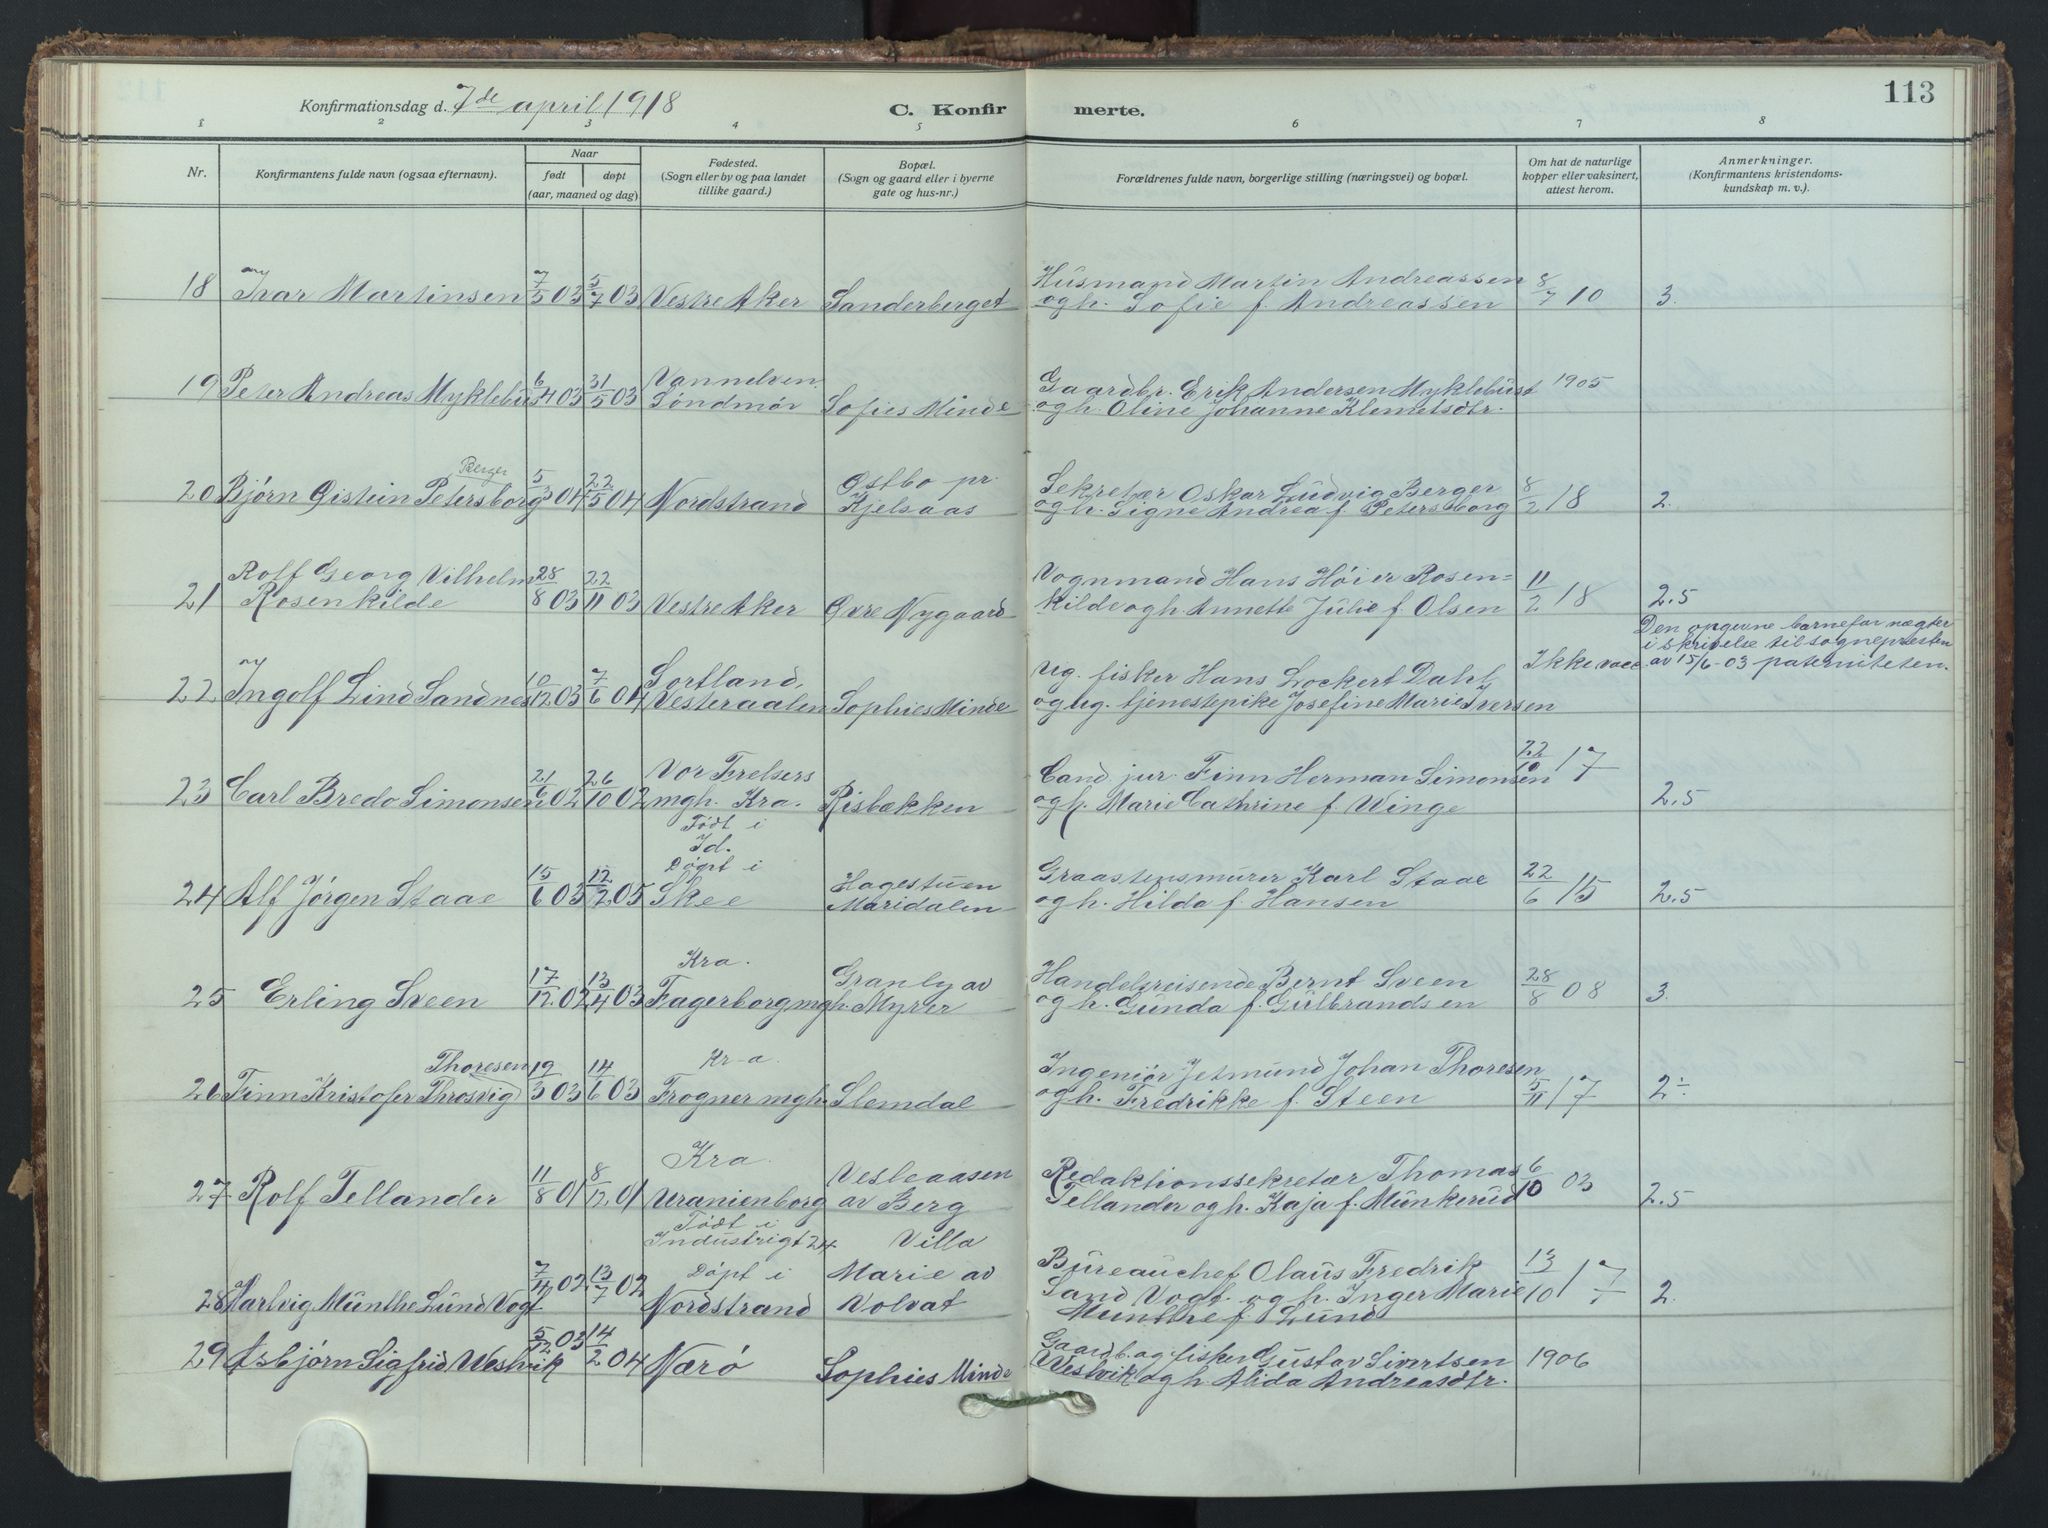 113
Konfirmationsdag d. 7de april 1918
C. Konfirmerte.
1 2 3 4 5 6 7 8
Nr.
Konfirmantens fulde navn (ogsaa efternavn).
Naar
født døpt
(aar, maaned og dag)
Fødested.
(Sogn eller by og paa landet
tillike gaard.)
Bopæl.
(Sogn og gaard eller i byerne
gate og hus-nr.)
Forældrenes fulde navn, borgerlige stilling (næringsvei) og bopæl.
Om hat de naturlige
kopper eller vaksinert,
attest herom.
Anmerkninger.
(Konfirmantens kristendoms-
kundskap m. v.)
18 Ivar Martinsen 7/5 03 5/7 03 Vestre Aker Sanderberget
Husmand Martin Andreassen
ogh. Sofie f. Andreassen 8/7 10 3.
19 Peter Andreas Myklebust 6/4 03 31/5 03
Vannelven
Søndmør
Sofies Minde
Gaardbr. Erik Andersen Myklebust
ogh. Oline Johanne Klemetsdtr. 1905
20 Bjørn Øistein Petersborg Berger 5/3 04 22/5 04 Nordstrand
Østbo pr.
Kjelsaas
Sekretær Oskar Ludvig Berger
ogh. Signe Andrea f. Petersborg 8/2 18 2.
21 Rolf Georg Vilhelm
Rosenkilde 28/8 03 22/11 03 Vestre Aker Øvre Nygaard
Vognmand Hans Höier Rosen=
kilde ogh. Annette Julie f. Olsen 11/2 18 2.5
22 Ingolf Lind Sandnes 10/12 03 7/6 04
Sortland,
Vesteraalen
Sophies Minde
Ug. fisker Hans Lockert Dahl
og ug. tjenestepike Josefine Marie Iversen
Ikke vacc.
Den opgivne barnefar nægter
i skrivelse til sognepresten
av 15/6-03 paterniteten.
23 Carl Bredo Simonsen 21/6 02 26/10 02
Vor Frelsers
mgh. Kra.
Risbækken
Cand. jur. Finn Herman Simonsen
ogh. Marie Cathrine f. Winge 22/10 17 2.5
24 Alf Jørgen Staae 15/6 03 12/2 05
Født i
Id.
Døpt i
Skee
Hagestuen
Maridalen
Graastensmurer Karl Staae
ogh. Hilda f. Hansen 22/6 15 2.5
25 Erling Sveen 17/12 02 13/4 03
Kra.
Fagerborg mgh.
Granly av
Myrer
Handelsreisende Bernt Sveen
ogh. Gunda f. Gulbrandsen 28/8 08 3.
26 Finn Kristofer Throsvig Thoresen 19/3 03 14/6 03
Kr-a.
Frogner mgh.
Slemdal
Ingeniør Jetmund Johan Thoresen
ogh. Fredrikke f. Steen 5/11 17 2÷
27 Rolf Tellander 11/8 01 8/12 01
Kra.
Uranienborg
Vesleaasen
av Berg
Redaktionssekretær Thomas
Tellander ogh. Kaja f. Munkerud 6/10 03 2.5
28 Hartvig Munthe Lund Vogt 7/4 02 13/7 02
Født i
Industrigt 24
Døpt i
Nordstrand
Villa
Marie av
Volvat
Bureauchef Olaus Fredrik
Sand Vogt ogh. Inger Marie
Munthe f. Lund 13/10 17 2.
29 Asbjørn Sigfrid Vestvik 5/12 03 14/2 04 Nærö Sophies Minde
Gaardb. og fisker Gustav Sivertsen
Vestvik ogh. Alida Andreasdtr. 1906